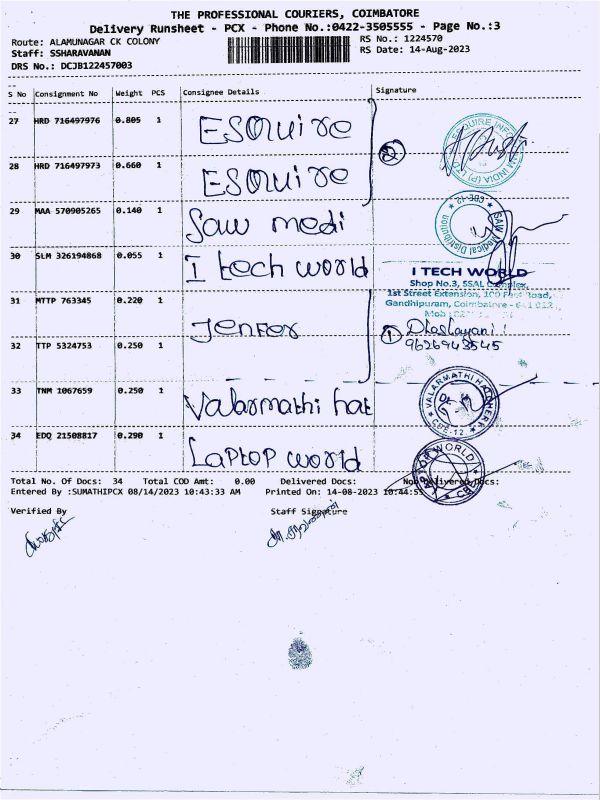 THE PROFESSIONAL COURIERS, COIMBATORE
Delivery Runsheet - PCX - Phone No.:0422-3505555 - Page No.:3
Route: ALAMUNAGAR CK COLONY
RS No.: 1224570
Staff: SSHARAVANAN
RS Date: 14-Aug-2023
DRS No.: DCJB122457003
S No Consignment No Weight PCS Consignee Details Signature
27 HRD 716497976 0.805 1 ESQUIRE
28 HRD 716497973 0.660 1 ESQUIRE
2
29 MAA 570905265 0.140 1 Saw medi
SAW Medical Distribution CBE-12
30 SLM 326194868 0.055 1 I tech world
I TECH WORLD
Shop No.3, SSAL Complex,
1st Street Extension, 100 Feet Road,
Gandhipuram, Coimbatore - 641 012
Mob :
31 MTTP 763345 0.220 1 Jenfer
1
9626943545
32 TTP 5324753 0.250 1
33 TNM 1067659 0.250 1 Valarmathi hat
VALARMATHI HATCHERY CBE-12
34 EDQ 21508817 0.290 1 Laptop world
LAPTOP WORLD CBE
Total No. Of Docs: 34 Total COD Amt: 0.00 Delivered Docs: Non Delivered Docs:
Entered By :SUMATHIPCX 08/14/2023 10:43:33 AM Printed On: 14-08-2023 10:44:55
Verified By Staff Signature